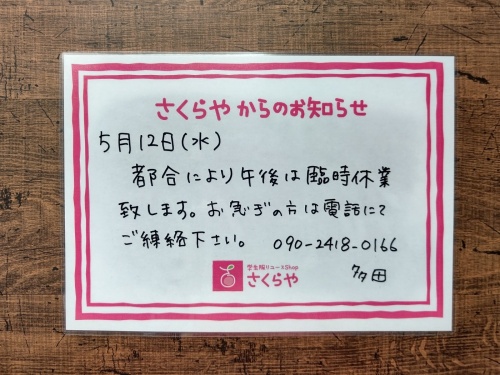 さくらや からのお知らせ
5月12日(水)
都合により午後は臨時休業
致します。お急ぎの方は電話にて
ご練絡下さい。 090-2418-0166
学生服リユースShop
さくらや
多田